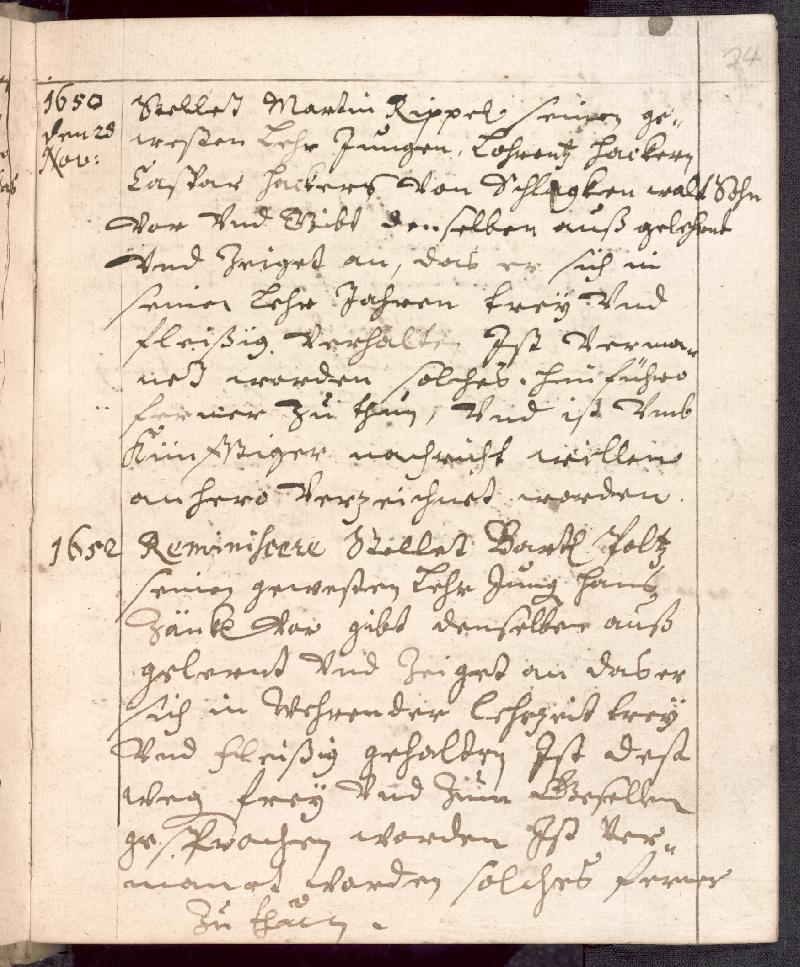 24
1650
den 28
Nov:
Stellet Martin Rippel seinen ge„
westen Lehr Jungen, Lohrentz hackern
Caspar hackers von Schlagken walt Sohn
vor vnd Gibt denselben auß gelehrnt
vnd Zeiget an, das er sich in
seinen Lehr Jahren trey vnd
fleißig verhalten Ist verma„
net worden solches hinführo
ferner zu thun, vnd ist vmb
Künfftiger nachricht willen
anhero verzeichnet worden.
1652 Reminiscere Stellet Bartl Poltz
seinen gewesten Lehr Jung hans
Zänkl vor gibt denselben auß
gelernt vnd Zeiget an das er
sich in wehrender lehrzeit trey
vnd fleißig gehalten Ist dest
weg frey vnd zum Gesellen
gesprochen worden Ist ver„
manet worden solches ferner
zu thun.